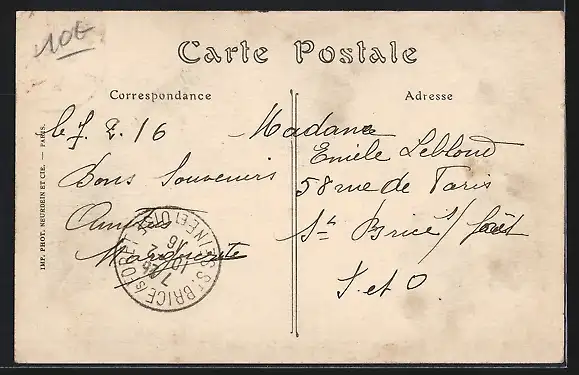 10€
Carte Postale
Correspondance
Adresse
le 7. 2. 16
Bons Souvenirs
Amitiés
Marguerite
Madame
Emile Leblond
58 rue de Paris
St Brice s/ forêt
S. et O
IMP. PHOT. NEURDEIN ET CIE. — PARIS.
ST BRICE S/s FORET
SEINE ET OISE